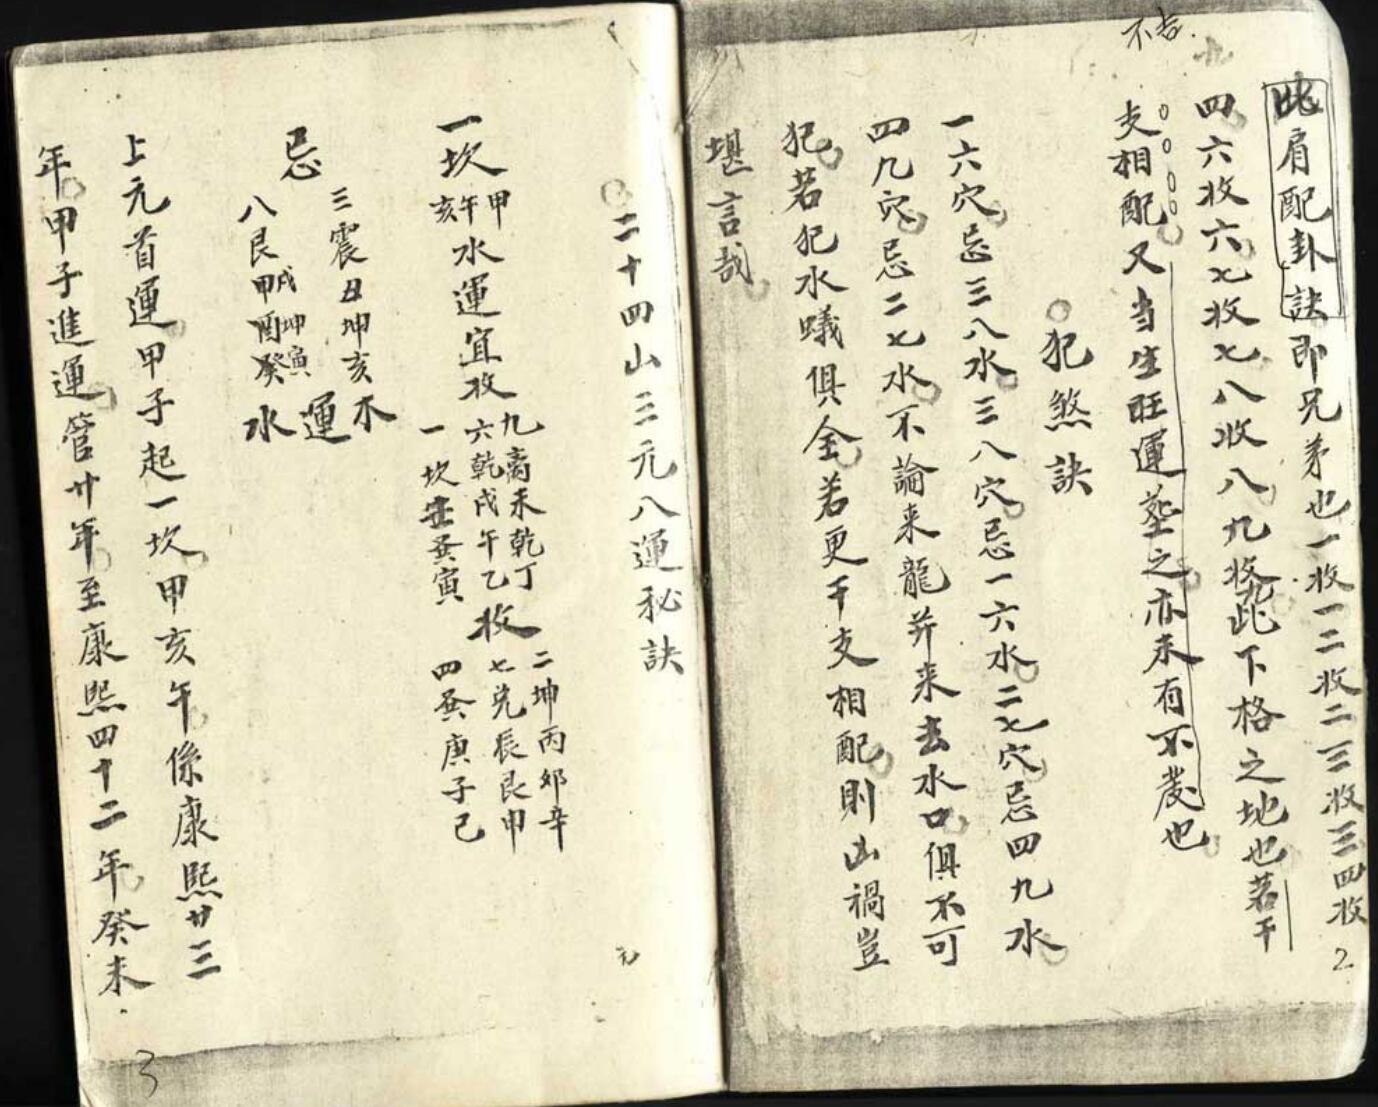 不吉.
比肩配卦訣即兄弟也一收一二收二三收三四收
四六收六七收七八收八九收九此下格之地也若干
支相配又当生旺運塟之亦未有不發也
犯煞訣
一六穴忌三八水三八穴忌一六水二七穴忌四九水
四九穴忌二七水不論来龍并来去水口俱不可
犯若犯水蟻俱全若更干支相配則凶禍豈
堪言哉
2
二十四山三元八運秘訣
一坎甲午亥水運宜收九离未乾丁六乾戌午乙一坎壬巽寅收二坤丙卯辛七兌辰艮甲四巽庚子己
忌三震丑坤亥八艮戌坤寅甲酉癸水運木
上元首運甲子起一坎甲亥午係康熙廿三
年甲子進運管廿年至康熙四十二年癸未
3